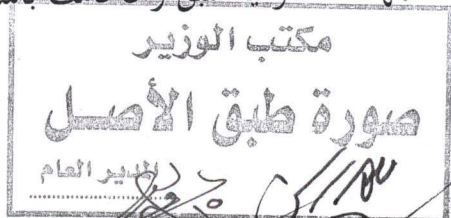 مكتب الوزير
صورة طبق الأصل
المدير العام